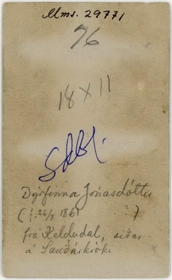 Mms. 29771
76
18 X 11
Dýrfinna Jónasdóttir
(f. 26/3 186 )
frá Keldudal, síðar
á Sauðárkróki